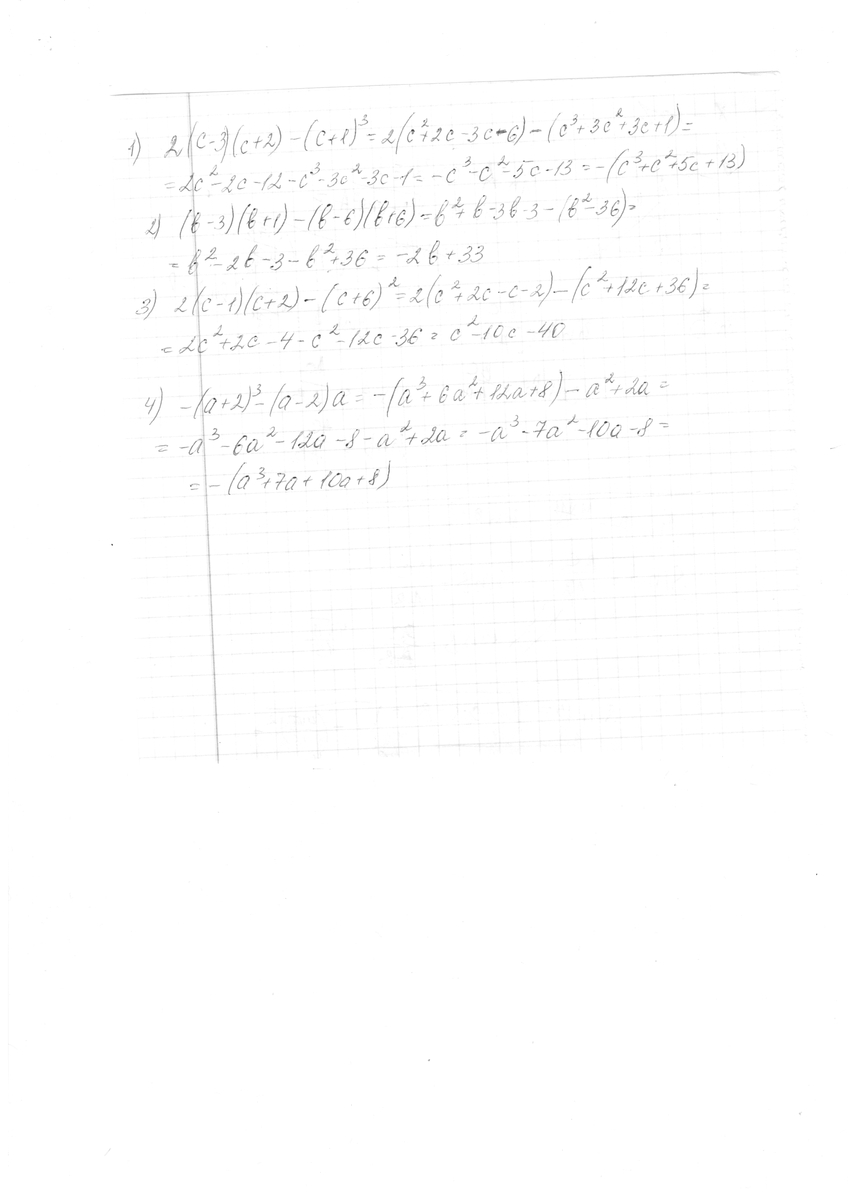 1) 2(c-3)(c+2) - (c+1)³ = 2(c²+2c-3c-6) - (c³+3c²+3c+1) =
= 2c²-2c-12-c³-3c²-3c-1 = -c³-c²-5c-13 = -(c³+c²+5c+13)
2) (b-3)(b+1) - (b-6)(b+6) = b²+b-3b-3-(b²-36) =
= b²-2b-3-b²+36 = -2b+33
3) 2(c-1)(c+2) - (c+6)² = 2(c²+2c-c-2) - (c²+12c+36) =
= 2c²+2c-4-c²-12c-36 = c²-10c-40
4) -(a+2)³-(a-2)a = -(a³+6a²+12a+8)-a²+2a =
= -a³-6a²-12a-8-a²+2a = -a³-7a²-10a-8 =
= -(a³+7a+10a+8)